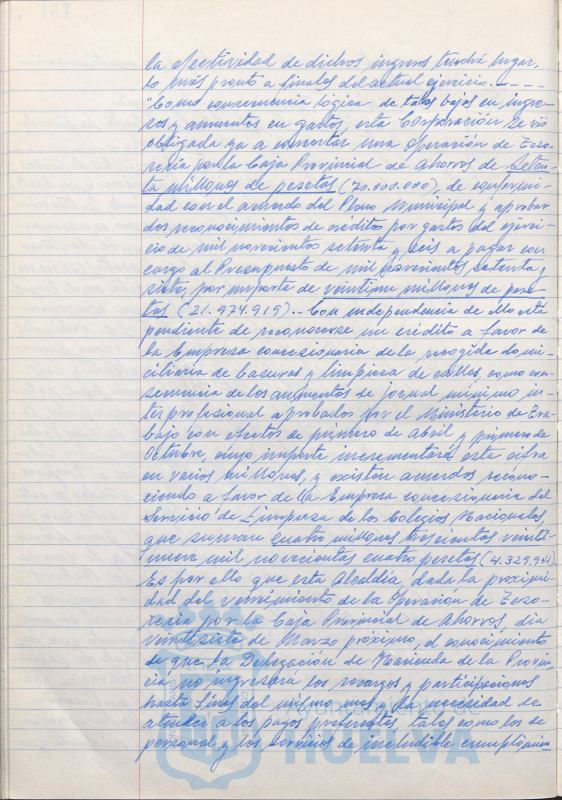 la efectividad de dichos ingresos tendrá lugar,
lo más pronto a finales del actual ejercicio. - - - -
"Como consecuencia lógica de tales bajas en ingre-
sos y aumentos en gastos, esta Corporación se vió
obligada ya a concertar una Operación de Teso-
rería con la Caja Provincial de Ahorros de Seten-
ta millones de pesetas (70.000.000), de conformi-
dad con el acuerdo del Pleno Municipal y aproba-
dos reconocimientos de créditos por gastos del ejerci-
cio de mil novecientos setenta y seis a pagar con
cargo al Presupuesto de mil novecientos setenta y
siete, por importe de veintiun millones de pese-
tas (21.974.919).- Con independencia de ello está
pendiente de reconocerse un crédito a favor de
la Empresa concesionaria de la recogida domi-
ciliaria de basuras y limpieza de calles, como con-
secuencia de los aumentos de jornal mínimo in-
terprofesional aprobados por el Ministerio de Tra-
bajo con efectos de primero de Abril y primero de
Octubre, cuyo importe incrementará esta cifra
en varios millones, y existen acuerdos recono-
ciendo a favor de la Empresa concesionaria del
Servicio de Limpieza de los Colegios Nacionales,
que suman cuatro millones trescientas veinti-
nueve mil novecientas cuatro pesetas (4.329.904).
Es por ello que esta Alcaldía, dada la proximi-
dad del vencimiento de la Operación de Teso-
rería por la Caja Provincial de Ahorros, dia
veintisiete de Marzo próximo, el conocimiento
de que la Delegación de Hacienda de la Provin-
cia no ingresará los recargos y participaciones
hasta fines del mismo mes y la necesidad de
atender a los pagos preferentes, tales como los de
personal y los servicios de ineludible cumplimien
HUELVA